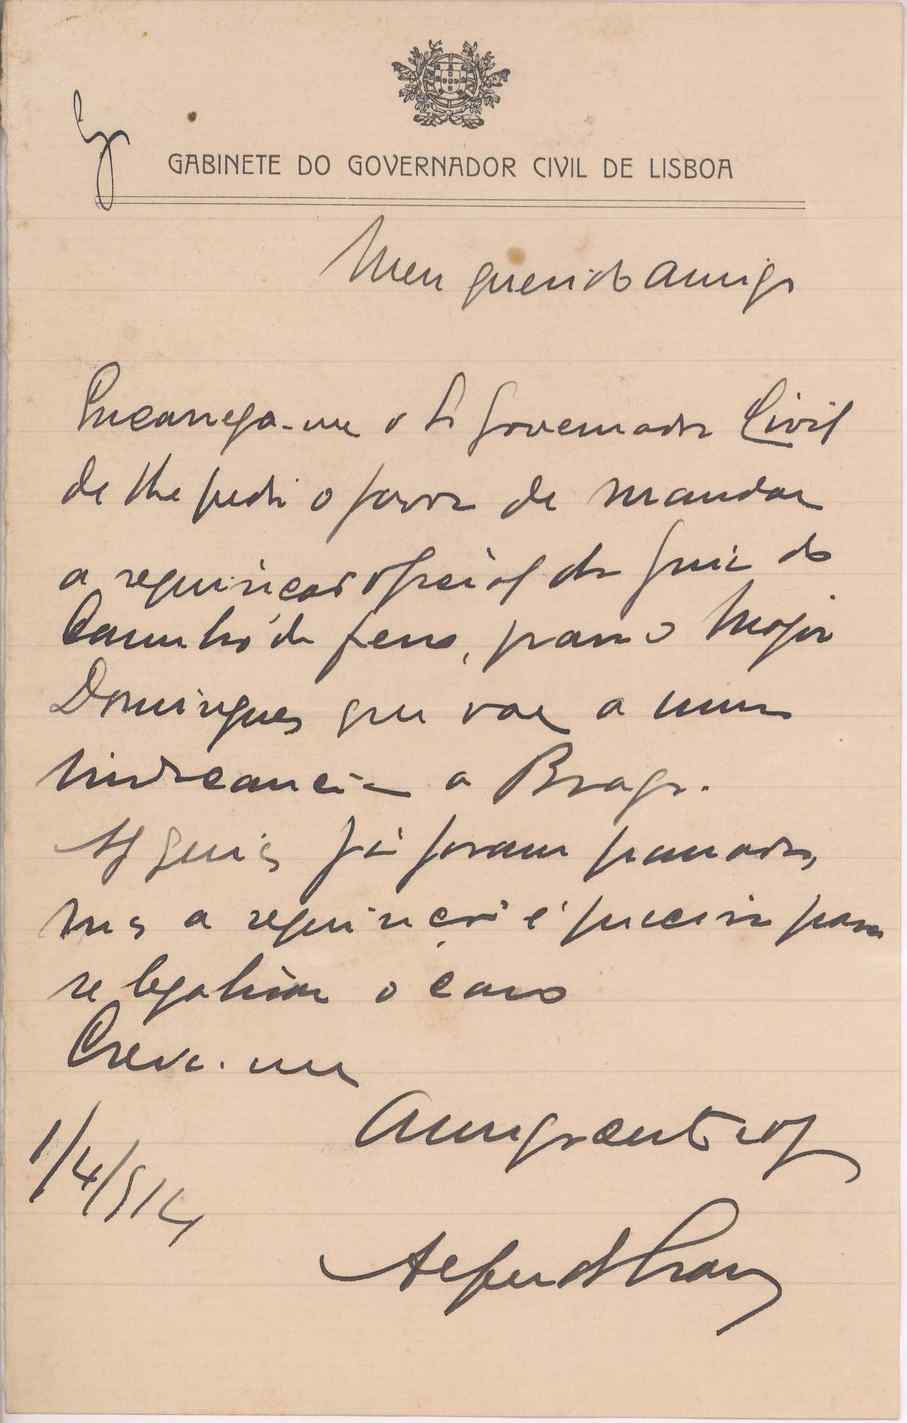 GABINETE DO GOVERNADOR CIVIL DE LISBOA
Meu querido amigo
Encarrega-me o Sr Governador Civil
de lhe pedir o favor de mandar
a requisição oficial da guia do
Caminho de ferro, para o Major
Domingues que vae a uma
sindicancia a Braga.
As guias já foram passadas,
mas a requisição é precisa para
se legalisar o caso
Creia-me
Amigo
1/4/914